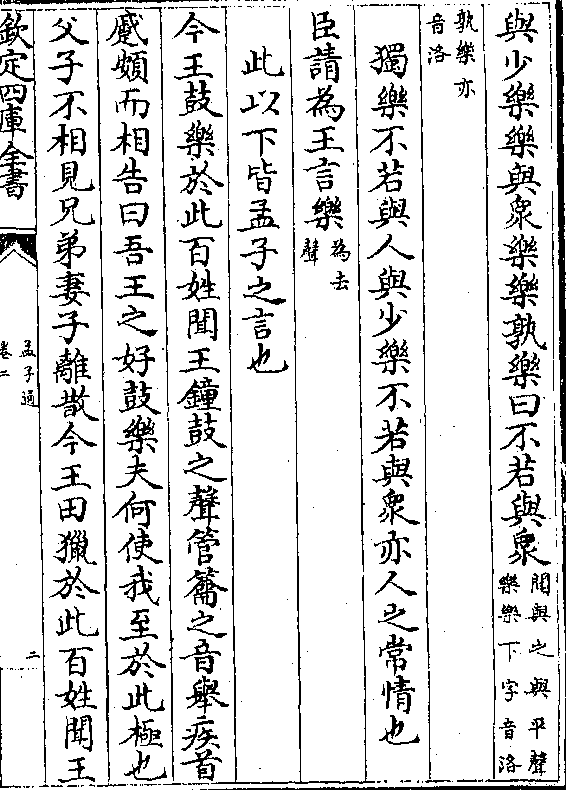 與少樂樂與衆樂樂孰樂曰不若與衆聞與之與平聲樂樂下字音洛
孰樂亦音洛
獨樂不若與人與少樂不若與衆亦人之常情也
臣請為王言樂為去聲
此以下皆孟子之言也
今王鼓樂於此百姓聞王鐘鼓之聲管籥之音舉疾首
蹙頞而相告曰吾王之好鼓樂夫何使我至於此極也
父子不相見兄弟妻子離散今王田獵於此百姓聞王
欽定四庫全書
孟子通
卷二
二